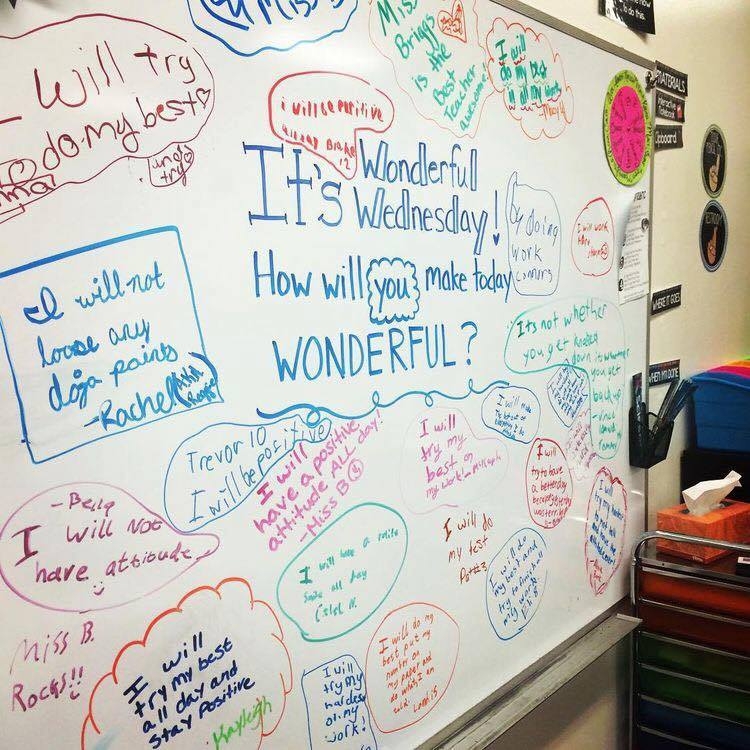 Miss
I will try
to do my best
Miss
Briggs
is the
Best
Teacher
awesome
I will
do my best
in all my
i will be positive
all day Blake
12
It's Wonderful
Wednesday!
How will you make today
WONDERFUL?
By doing
work
I will work
hard
I will not
loose any
doja points
-Rachel
Its not whether
you get knocked
down its whether
you get
back up
- vince
Trevor 10
I will be positive
I will
have a positive
attitude ALL day!
-Miss B
I will
try my
best on
my work!
I will
try to have
a better day
because yesterday
was terrible
- Bella
I will NOT
have attitude
I will have a smile
all day
I will do
my test
I will do
my best and
try to finish all
my work
I will
try my
Miss B.
Rocks!!
I will
try my best
all day and
stay positive
Kayleigh
I will
try my
hardest
on my
work!
I will do my
best put my
number on
my paper and
do what I am
told.
MATERIALS
Interactive
Notebook
Clipboard
WHERE IT GOES
WHEN I'M DONE
to do this.